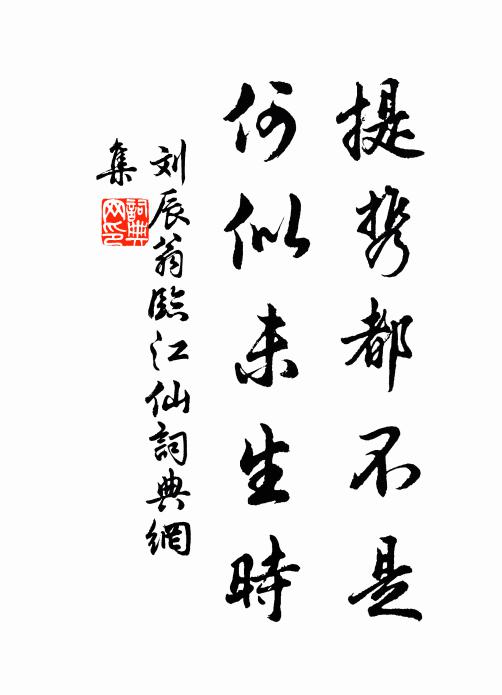 提携都不是
何似未生時
刘辰翁臨江仙詞典網
集
詞典
网印